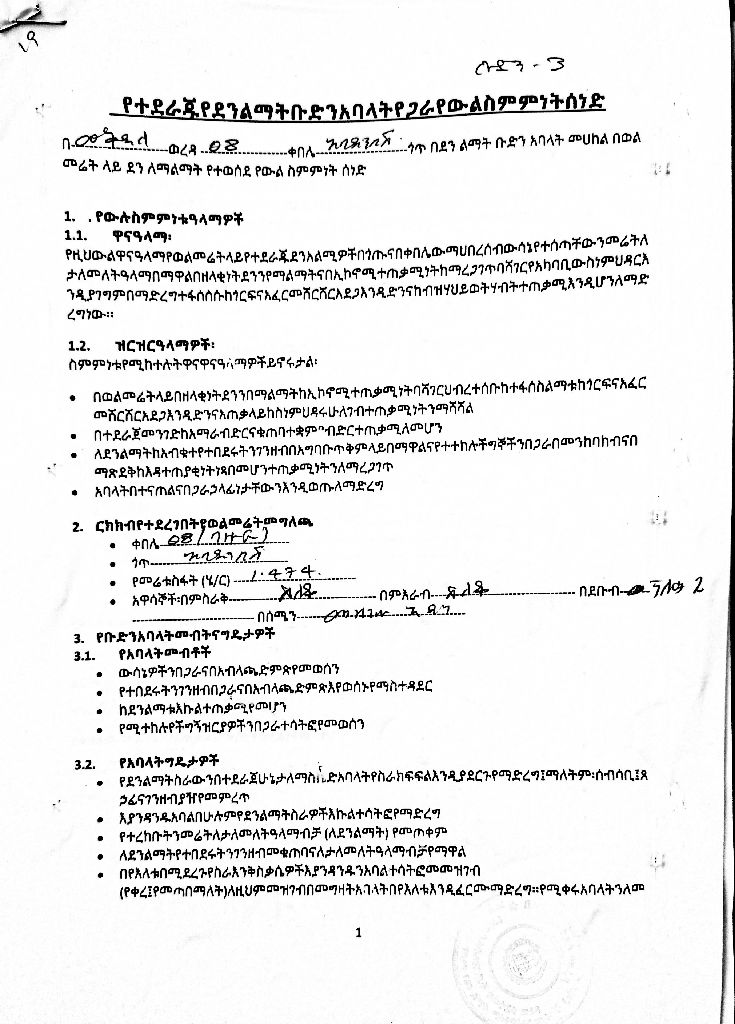 19
የተደራጁየደንልማትቡድንአባላትየጋራየውልስምምነትሰነድ
በ ወረዳ 08 ቀበሌ ጎጥ በደን ልማት ቡድን አባላት መሀከል በወል
መሬት ላይ ደን ለማልማት የተወሰደ የውል ስምምነት ሰነድ
1. .የውሉስምምነቱዓላማዎች
1.1. ዋናዓላማ፡
የዚህውልዋናዓላማየወልመሬትላይየተደራጁደንአልሚዎችበጎጡናበቀበሌውማህበረሰብውሳኔየተሰጣቸውንመሬትለ
ታለመለትዓላማበማዋልበዘላቂነትደንንየማልማትናበኢኮኖሚተጠቃሚነትከማረጋገጥባሻገርየአካባቢውስነምህዳርእ
ንዲያገግምበማድረግተፋሰሱከጎርፍናአፈርመሸርሸርአደጋእንዲድንናከብዝሃህይወትሃብትተጠቃሚእንዲሆንለማድ
ረግነው።
1.2. ዝርዝርዓላማዎች፡
ስምምነቱየሚከተሉትዋናዋናዓላማዎችይኖሩታል፡
• በወልመሬትላይበዘላቂነትደንንበማልማትከኢኮኖሚተጠቃሚነትባሻገርህብረተሰቡከተፋሰስልማቱከጎርፍናአፈር
መሸርሸርአደጋእንዲድንናአጠቃላይከስነምህዳሩሁለገብተጠቃሚነትንማሻሻል
• በተደራጀመንገድከአማራብድርናቁጠባተቋምብድርተጠቃሚለመሆን
• ለደንልማትከአብቁተየተበደሩትንገንዘብበአግባቡጥቅምላይበማዋልናየተተከሉችግኞችንበጋራበመንከባከብናበ
ማጽደቅከእዳተጠያቂነትነጻበመሆንተጠቃሚነትንለማረጋገጥ
• አባላትበተናጠልናበጋራኃላፊነታቸውንእንዲወጡለማድረግ
2. ርክክብየተደረገበትየወልመሬትመግለጫ
• ቀበሌ 08
• ጎጥ
• የመሬቱስፋት (ሄ/ር) 1.474
• አዋሳኞች፡በምስራቅ በምእራብ በደቡብ
በሰሜን
3. የቡድንአባላትመብትናግዴታዎች
3.1. የአባላትመብቶች
• ውሳኔዎችንበጋራናበአብላጫድምጽየመወሰን
• የተበደሩትንገንዘብበጋራናበአብላጫድምጽእየወሰኑየማስተዳደር
• ከደንልማቱእኩልተጠቃሚየመሆን
• የሚተከሉየችግኝዝርያዎችንበጋራተሳትፎየመወሰን
3.2. የአባላትግዴታዎች
• የደንልማትስራውንበተደራጀሁኔታለማስኬድአባላትየስራክፍፍልእንዲያደርጉየማድረግ፤ማለትም፡ሰብሳቢ፤ጸ
ኃፊናገንዘብያዥየመምረጥ
• እያንዳንዱአባልበሁሉምየደንልማትስራዎችእኩልተሳትፎየማድረግ
• የተረከቡትንመሬትለታለመለትዓላማብቻ (ለደንልማት) የመጠቀም
• ለደንልማትየተበደሩትንገንዘብመቁጠባናለታለመለትዓላማብቻየማዋል
• በየእለቱበሚደረጉየስራእንቅስቃሴዎችእያንዳንዱንአባልተሳትፎመመዝገብ
(የቀረ፤የመጣበማለት)ለዚህምመዝገብበመግዛትአባላትበየእለቱእንዲፈርሙማድረግ።የሚቀሩአባላትንለመ
1